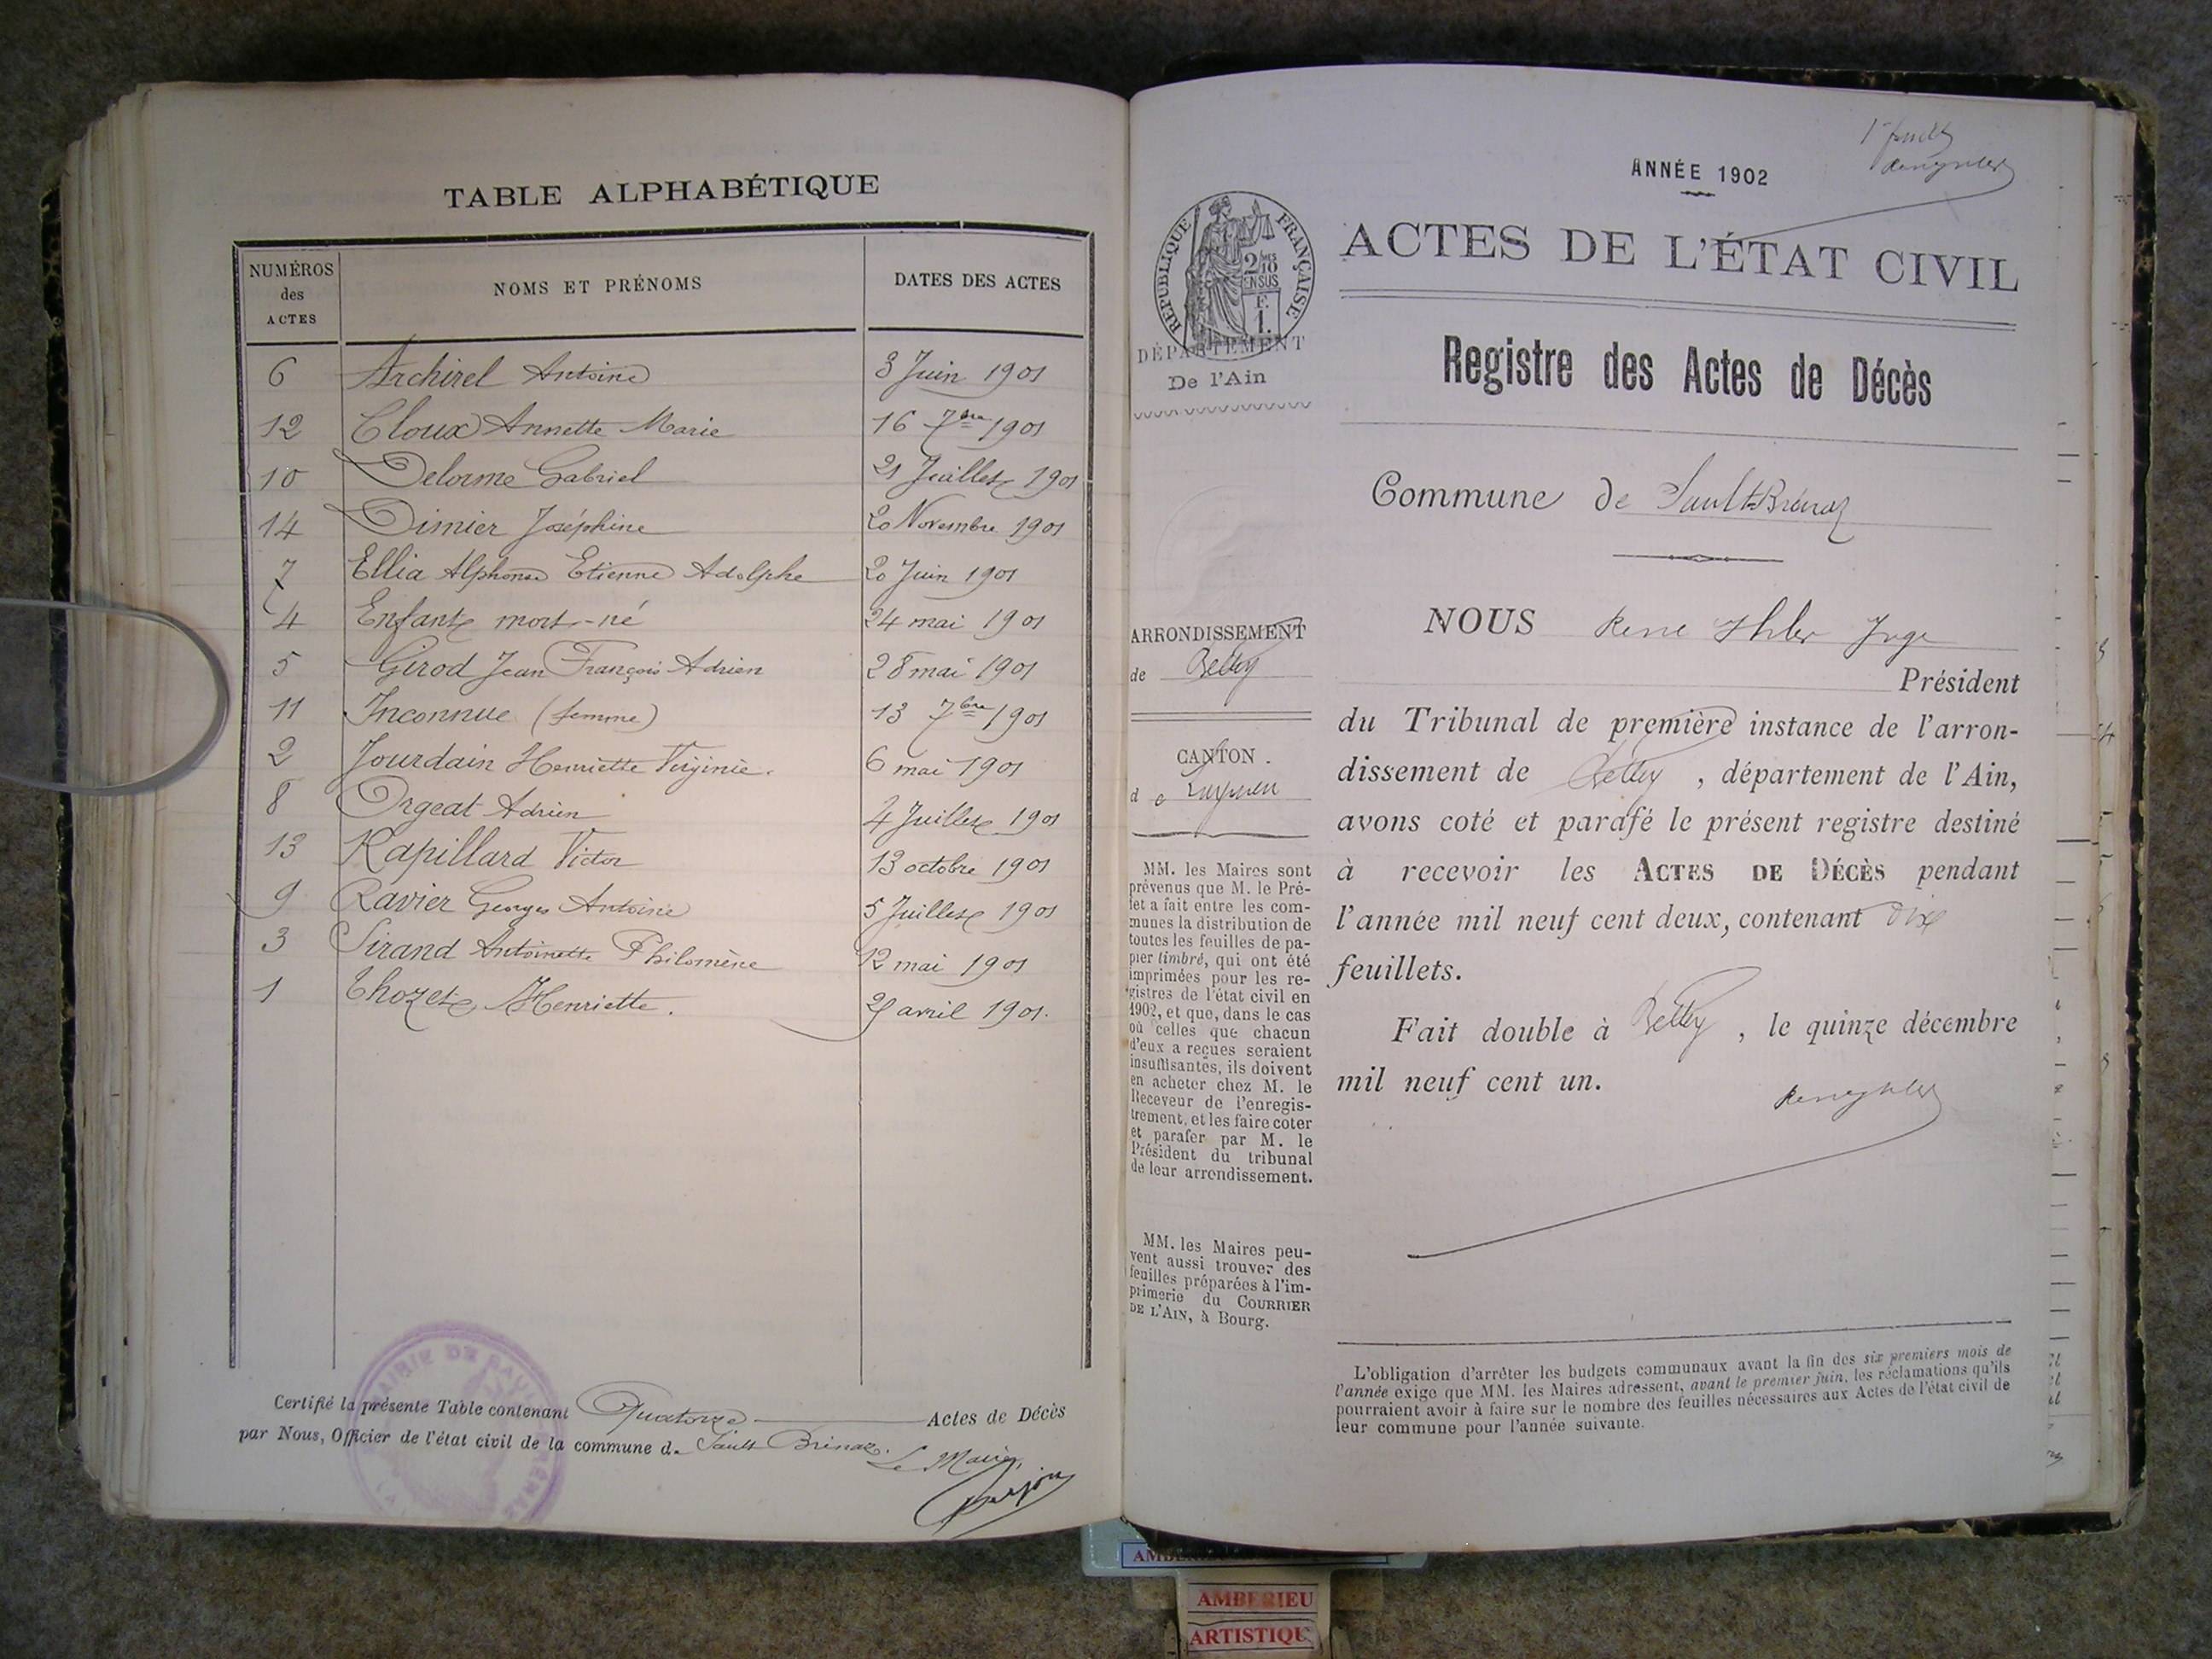 TABLE ALPHABÉTIQUE
NUMÉROS des ACTES
NOMS ET PRÉNOMS
DATES DES ACTES
6 Archirel Antoine 3 Juin 1901
12 Cloux Annette Marie 16 7bre 1901
10 Delorme Gabriel 21 Juillet 1901
14 Dimier Joséphine 20 Novembre 1901
7 Ellia Alphonse Etienne Adolphe 20 Juin 1901
4 Enfant mort-né 24 mai 1901
5 Girod Jean François Adrien 28 mai 1901
11 Inconnue (femme) 13 7bre 1901
2 Jourdain Henriette Virginie. 6 mai 1901
8 Orgeat Adrien 4 Juillet 1901
13 Rapillard Victor 13 octobre 1901
9 Ravier Georges Antoine 5 Juillet 1901
3 Sirand Antoinette Philomène 12 mai 1901
1 Thozet Henriette. avril 1901.
Certifié la présente Table contenant Quatorze Actes de Décès
par Nous, Officier de l'état civil de la commune de Sault Brénaz.
Le Maire,
MAIRIE DE SAULT-BRENAZ
1er
ANNÉE 1902
ACTES DE L'ÉTAT CIVIL
RÉPUBLIQUE FRANÇAISE
2/10 EN SUS
F. 1.
DÉPARTEMENT
De l'Ain
Registre des Actes de Décès
Commune de Sault-Brénaz
ARRONDISSEMENT
de Belley
CANTON
de Lagnieu
NOUS René Ihler Juge
Président
du Tribunal de première instance de l'arron-
dissement de Belley, département de l'Ain,
avons coté et parafé le présent registre destiné
à recevoir les ACTES DE DÉCÈS pendant
l'année mil neuf cent deux, contenant dix
feuillets.
Fait double à Belley, le quinze décembre
mil neuf cent un.
MM. les Maires sont
prévenus que M. le Pré-
fet a fait entre les com-
munes la distribution de
toutes les feuilles de pa-
pier timbré, qui ont été
imprimées pour les re-
gistres de l'état civil en
1902, et que, dans le cas
où celles que chacun
d'eux a reçues seraient
insuffisantes, ils doivent
en acheter chez M. le
Receveur de l'enregis-
trement, et les faire coter
et parafer par M. le
Président du tribunal
de leur arrondissement.
MM. les Maires peu-
vent aussi trouver des
feuilles préparées à l'im-
primerie du COURRIER
DE L'AIN, à Bourg.
L'obligation d'arrêter les budgets communaux avant la fin des six premiers mois de
l'année exige que MM. les Maires adressent, avant le premier juin, les réclamations qu'ils
pourraient avoir à faire sur le nombre des feuilles nécessaires aux Actes de l'état civil de
leur commune pour l'année suivante.
AMBERIEU
ARTISTIQU